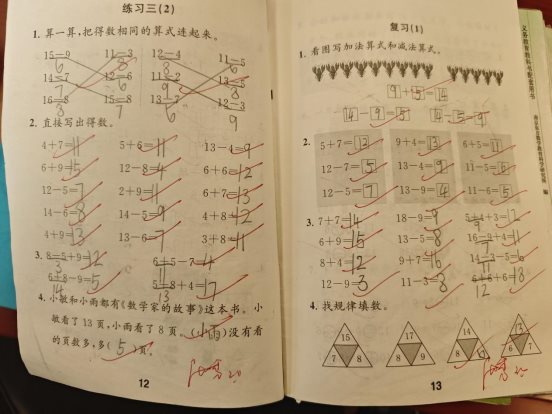 练习三(2)
1. 算一算,把得数相同的算式连起来。
15-9 11-3 12-4 11-5
6 8 8 6
14-7 12-6 11-2 13-5
7 6 9 8
16-8 15-8 13-7 12-3
7 6 9
2. 直接写出得数。
4+7=11 5+6=11 13-4=9
6+9=15 12-8=4 6+6=12
12-5=7 2+9=11 6+7=13
14-6=8 14-5=9 4+8=12
4+9=13 13-6=7 3+8=11
3. 8-5+9=12 6+5-7=4
3 11
6+8-9=5 5+8+4=17
14 13
4. 小敏和小雨都有《数学家的故事》这本书。小
敏看了13页,小雨看了8页。(小雨)没有看
的页数多,多(5)页。
12
复习(1)
1. 看图写加法算式和减法算式。
9+5=14
14-9=5 14-5=9
2.
5+7=12 9+4=13 6+5=11
12-7=5 13-4=9 11-5=6
12-5=7 13-9=4 11-6=5
3. 7+7=14 18-9=9 5+4+3=12
9
6+9=15 13-5=8 16-9+4=11
7
8+4=12 9+7=16 14-3-5=6
12-9=3 11-3=8 6+6+6=18
12
4. 找规律填数。
15 17 14 13
7 8 8 9 8 6 7
13
义务教育教科书配套用书